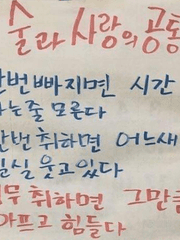 술과 사랑의 공통
한번 빠지면 시간
가는줄 모른다
한번 취하면 어느새
실실 웃고있다
너무 취하면 그만큼
아프고 힘들다